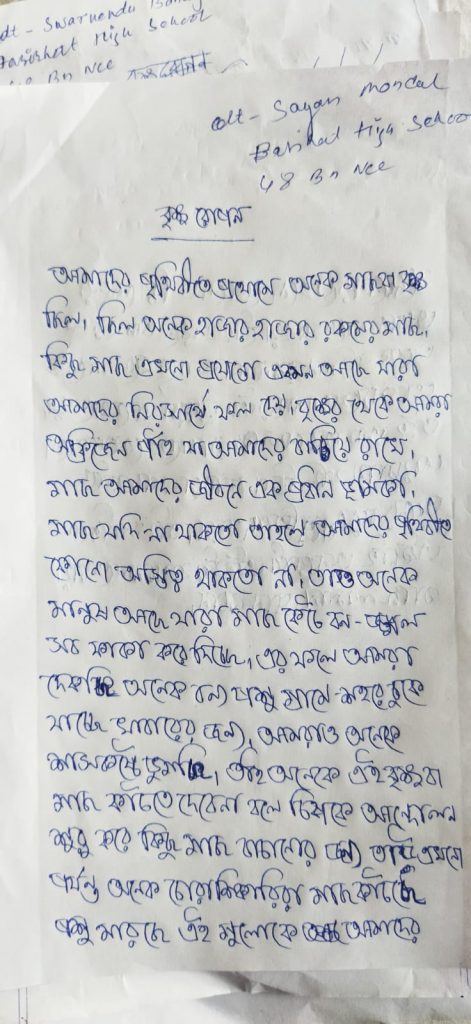 cdt - Swarnendu
Basirhat High School
48 Bn Ncc
cdt - Sayan mondal
Basirhat High School
48 Bn Ncc
বৃক্ষ রোপন
আমাদের পৃথিবীতে প্রথমে অনেক গাছবা বৃক্ষ
ছিল, ছিল অনেক হাজার হাজার রকমের গাছ,
কিছু গাছ এখনো এমন আছে যারা
আমাদের নিঃস্বার্থে ফল দেয়, বৃক্ষের থেকে আমরা
অক্সিজেন পাই যা আমাদের বাচিয়ে রাখে,
গাছ আমাদের জীবনে এক প্রধান ভূমিকা,
গাছ যদি না থাকতো তাহলে আমাদের পৃথিবীতে
কোনো অস্তিত্ব থাকতো না, তাও অনেক
মানুষ আছে যারা গাছ কেটে বন-জঙ্গল
সব ফাকা করে দিচ্ছে, এর ফলে আমরা
দেখছি অনেক বন্য পশু গ্রামে-শহরে ঢুকে
যাচ্ছে খাবারের জন্য, আমরাও অনেক
শ্বাসকষ্টে ভুগছি, তাই অনেকে এই বৃক্ষ বা
গাছ কাটতে দেবেনা বলে চিপকো আন্দোলন
শুরু করে কিছু গাছ বাচানোর জন্য তাই এখনো
পর্যন্ত অনেক চোরাশিকারিরা গাছ কাটছে
পশু মারছে এই গুলোকে আমাদের